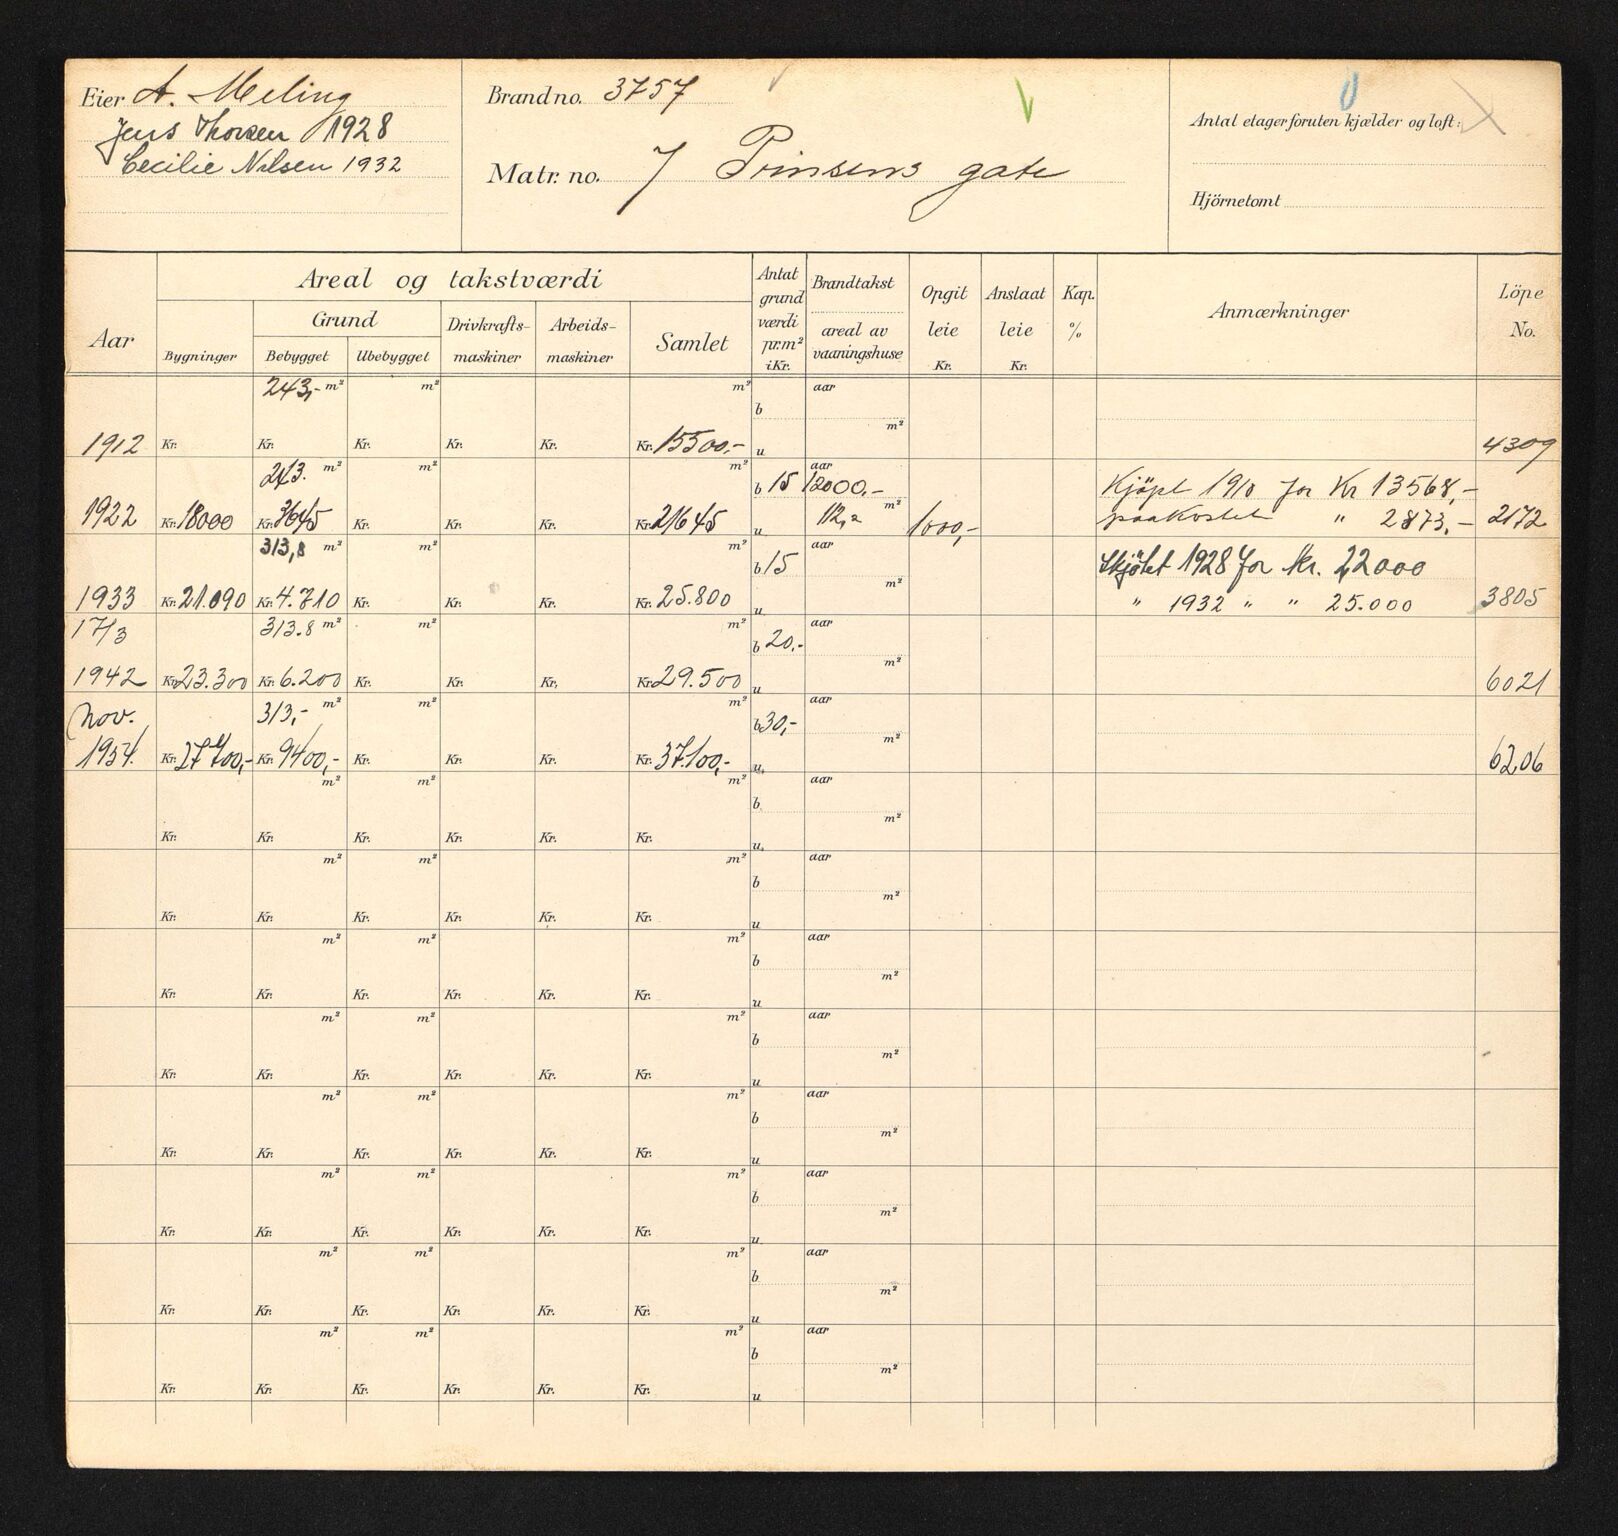 Eier A. Meling
Jens Thorsen 1928
Cecilie Nilsen 1932
Brand no. 3757
Matr. no. 7 Prinsens gate
Antal etager foruten kjælder og loft:
Hjörnetomt
Aar
Areal og takstværdi
Bygninger
Grund
Bebygget
Ubebygget
Drivkrafts-
maskiner
Arbeids-
maskiner
Samlet
Antat
grund
værdi
pr.m²
i Kr.
Brandtakst
areal av
vaaningshuse
Opgit
leie
Kr.
Anslaat
leie
Kr.
Kap.
%
Anmærkninger
Löpe
No.
243,- m² m² m² aar
b
m²
1912 Kr. Kr. Kr. Kr. Kr. Kr. 15500,- u 4309
243. m² m² m² aar
b 15 12000,- Kjöpt 1910 for Kr 13568,-
m²
1922 Kr. 18000 Kr. 3645 Kr. Kr. Kr. Kr. 21645 u 112,2 1000,- paakostet " 2873,- 2172
313,8 m² m² m² aar
b 15 Skjötet 1928 for Kr. 22000
m²
1933 Kr. 21.090 Kr. 4.710 Kr. Kr. Kr. Kr. 25.800 u " 1932 " " 25.000 3805
17/3 313.8 m² m² m² aar
b 20.-
m²
1942 Kr. 23.300 Kr. 6.200 Kr. Kr. Kr. Kr. 29.500 u 6021
Nov. 313,- m² m² m² aar
b 30,-
m²
1954. Kr. 27700,- Kr. 9400,- Kr. Kr. Kr. Kr. 37.100,- u 6206
m² m² m² aar
b
m²
Kr. Kr. Kr. Kr. Kr. Kr. u
m² m² m² aar
b
m²
Kr. Kr. Kr. Kr. Kr. Kr. u
m² m² m² aar
b
m²
Kr. Kr. Kr. Kr. Kr. Kr. u
m² m² m² aar
b
m²
Kr. Kr. Kr. Kr. Kr. Kr. u
m² m² m² aar
b
m²
Kr. Kr. Kr. Kr. Kr. Kr. u
m² m² m² aar
b
m²
Kr. Kr. Kr. Kr. Kr. Kr. u
m² m² m² aar
b
m²
Kr. Kr. Kr. Kr. Kr. Kr. u
m² m² m² aar
b
m²
Kr. Kr. Kr. Kr. Kr. Kr. u